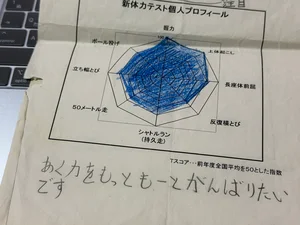 新体力テスト個人プロフィール
握力
ボール投げ
上体起こし
立ち幅とび
長座体前屈
50メートル走
反復横とび
シャトルラン
(持久走)
Tスコア…前年度全国平均を50とした指数
あく力をもっともーとがんばりたい
です